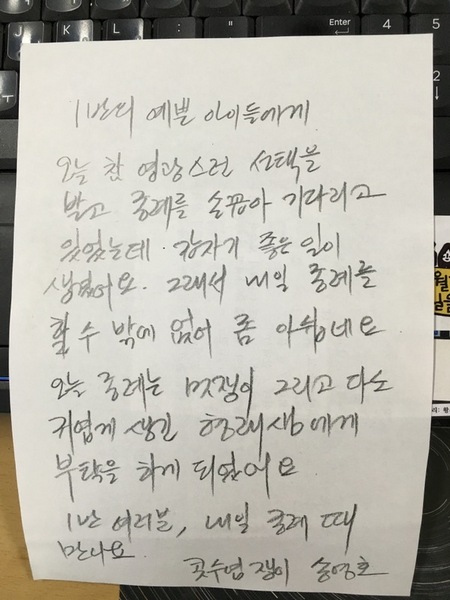 1반의 예쁜 아이들에게
오늘 참 영광스런 선택을
받고 종례를 손꼽아 기다리고
있었는데 갑자기 좋은 일이
생겼어요. 그래서 내일 종례를
할 수 밖에 없어 좀 아쉽네요
오늘 종례는 멋쟁이 그리고 다소
귀엽게 생긴 형래샘에게
부탁을 하게 되었어요
1반 여러분, 내일 종례 때
만나요.
콧수염 쟁이 송영호
Enter
4
5
2
J
K
L